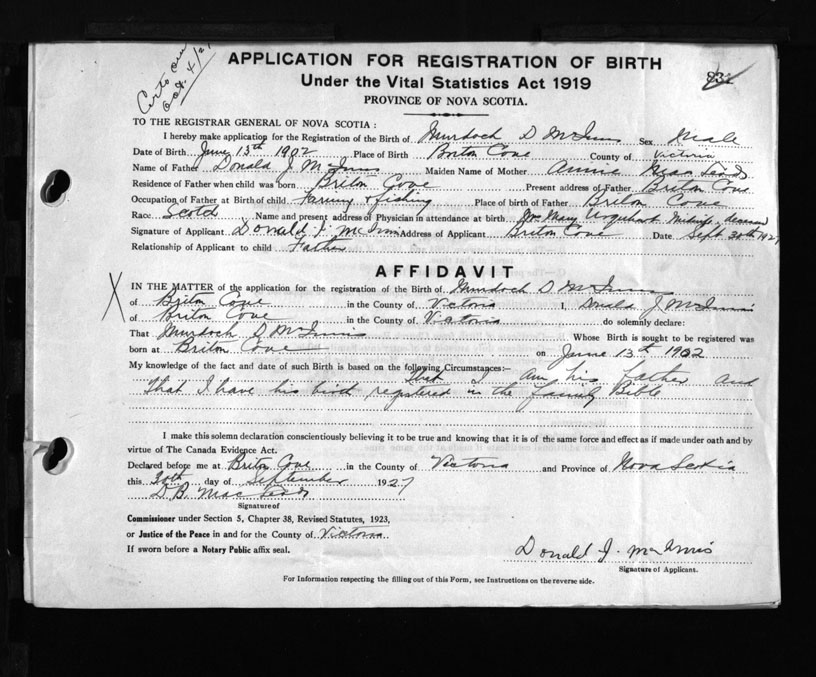 APPLICATION FOR REGISTRATION OF BIRTH
831
Under the Vital Statistics Act 1919
PROVINCE OF NOVA SCOTIA.
TO THE REGISTRAR GENERAL OF NOVA SCOTIA :
I hereby make application for the Registration of the Birth of Murdoch D McInnis Sex Male
Date of Birth June 13th 1902 Place of Birth Briton Cove County of Victoria
Name of Father Donald J McInnis Maiden Name of Mother Annie
Residence of Father when child was born Briton Cove Present address of Father Briton Cove
Occupation of Father at Birth of child Farming & fishing Place of birth of Father Briton Cove
Race Scotch Name and present address of Physician in attendance at birth Mrs Mary Urquhart Midwife deceased
Signature of Applicant Donald J. McInnis Address of Applicant Briton Cove Date Sept 30th 1927
Relationship of Applicant to child Father
AFFIDAVIT
IN THE MATTER of the application for the registration of the Birth of Murdoch D McInnis
of Briton Cove in the County of Victoria I, Donald J McInnis
of Briton Cove in the County of Victoria do solemnly declare:
That Murdoch D McInnis Whose Birth is sought to be registered was
born at Briton Cove on June 13th 1902
My knowledge of the fact and date of such Birth is based on the following Circumstances:—
That I am his father and
That I have his birth registered in the family Bible
I make this solemn declaration conscientiously believing it to be true and knowing that it is of the same force and effect as if made under oath and by
virtue of The Canada Evidence Act.
Declared before me at Briton Cove in the County of Victoria and Province of Nova Scotia
this 30th day of September 1927
D B MacLeod
Signature of
Commissioner under Section 5, Chapter 38, Revised Statutes, 1923,
or Justice of the Peace in and for the County of Victoria
If sworn before a Notary Public affix seal.
Donald J. McInnis
Signature of Applicant.
For Information respecting the filling out of this Form, see Instructions on the reverse side.